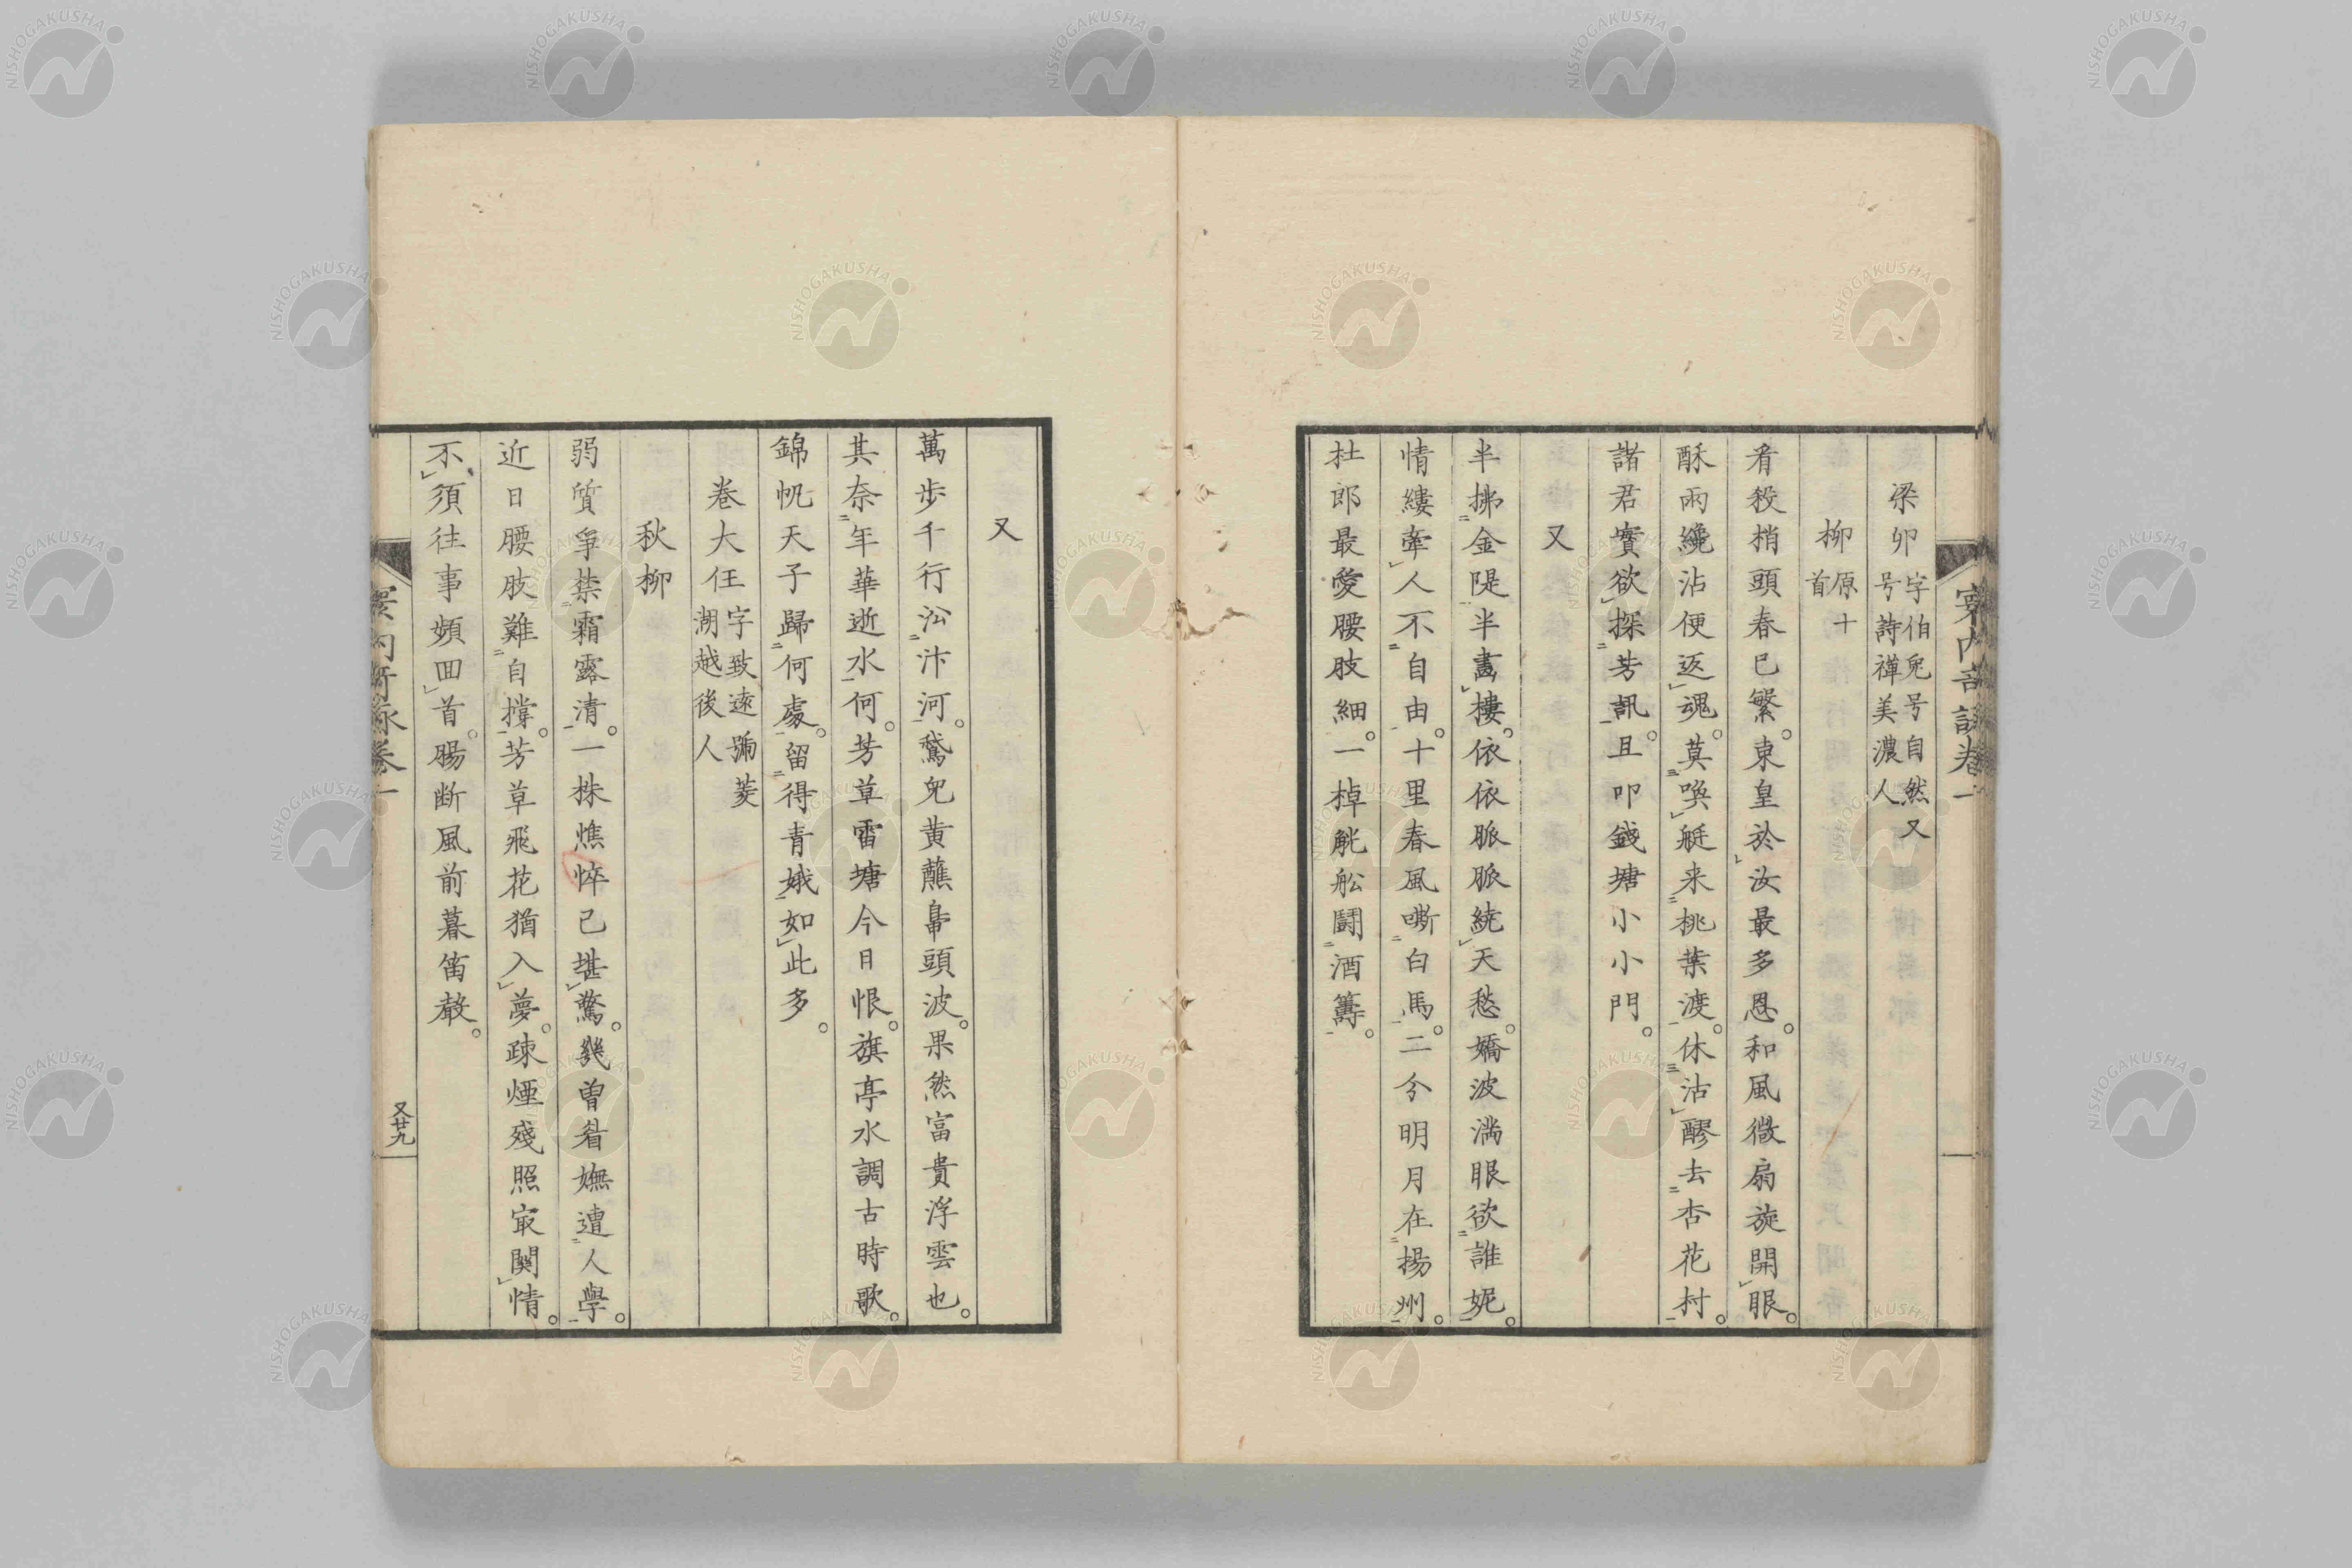 梁卯 字伯兔号自然又号詩禪美濃人
柳 原十首
看殺梢頭春已繁東皇於汝最多恩和風微扇旋開眼
酥雨纔沾便返魂莫喚艇来桃葉渡休沽醪去杏花村
諸君實欲探芳訊且叩錢塘小小門
又
半拂金隄半畫樓依依脈脈繞天愁嬌波満眼欲誰妮
情縷牽人不自由十里春風嘶白馬二分明月在揚州
杜郎最愛腰肢細一棹觥舩鬪酒籌
又
萬歩千行㳂汴河鵞兒黄蘸鼻頭波果然富貴浮雲也
其奈年華逝水何芳草雷塘今日恨旗亭水調古時歌
錦帆天子歸何處留得青娥如此多
卷大任 字致遠號菱湖越後人
秋柳
弱質爭禁霜露清一株憔悴已堪驚幾曽眉嫵遭人學
近日腰肢難自撐芳草飛花猶入夢疎煙殘照寂関情
不須往事頻囬首腸断風前暮笛聲
又廿九